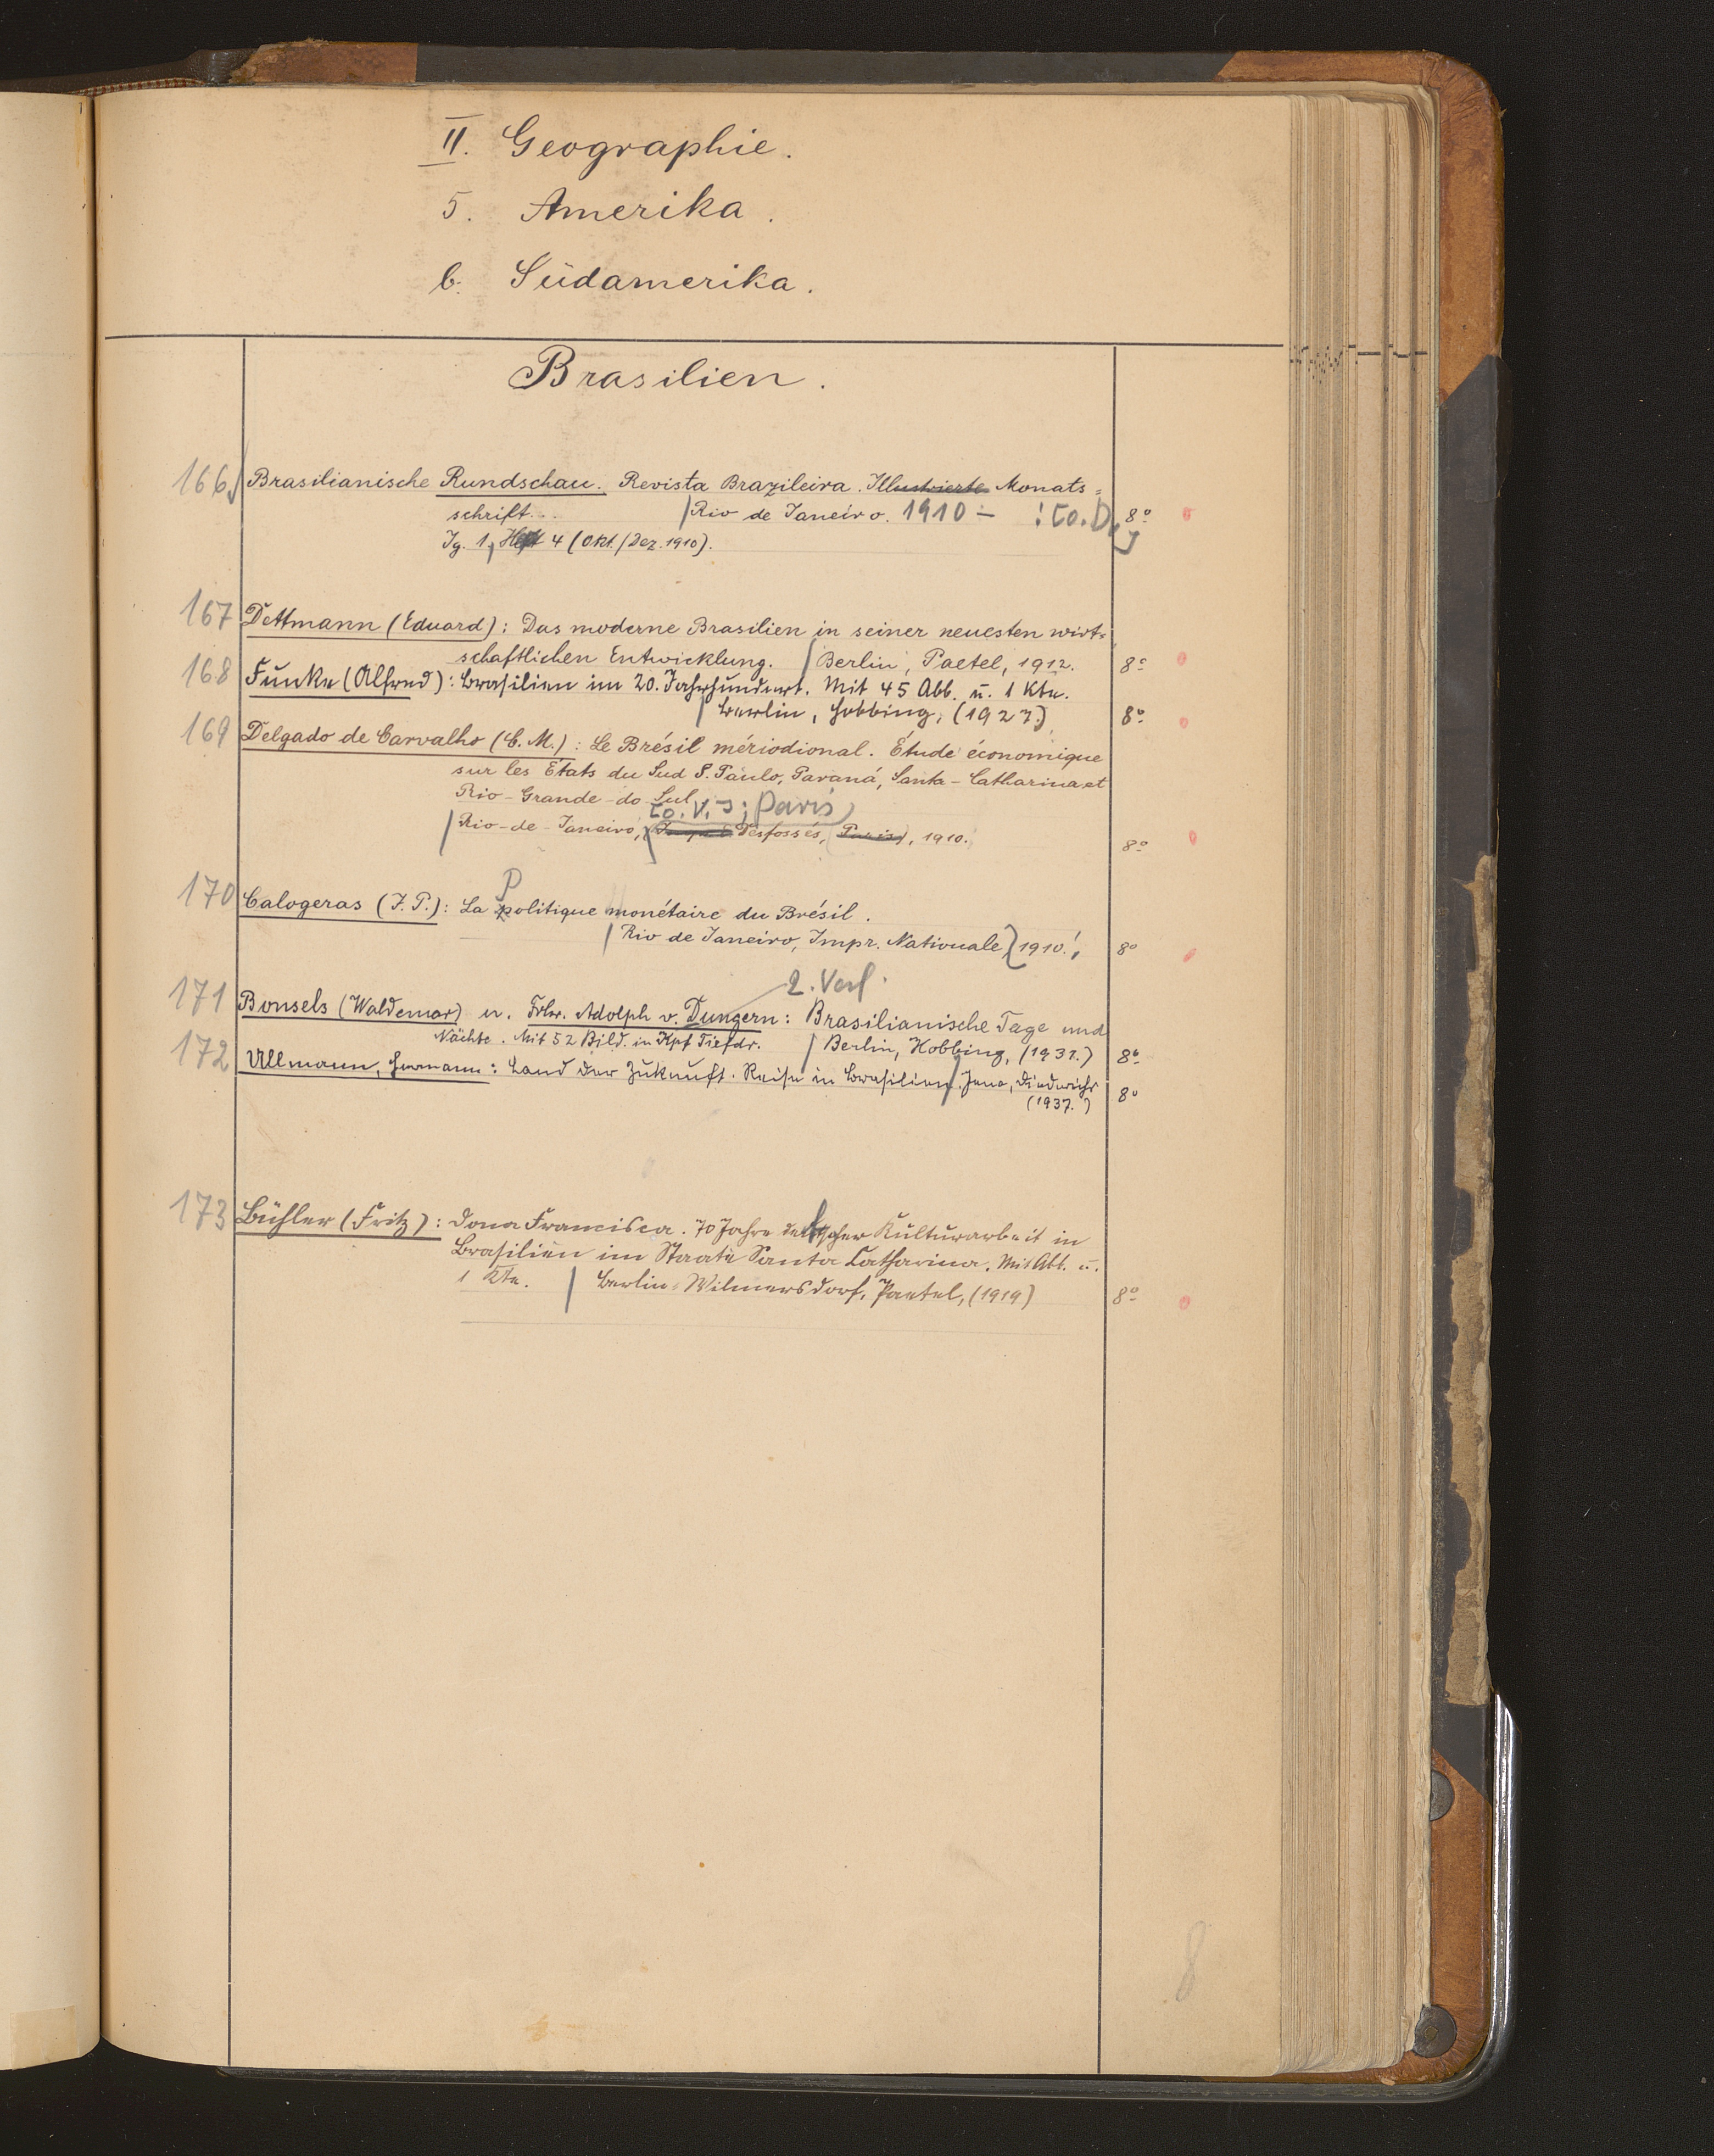 II. Geographie.
5. Amerika.
b. Südamerika.
Brasilien.
166 Brasilianische Rundschau. Revista Brazileira. Illustrierte Monats=
schrift... Rio de Janeiro. 1910 - : [o. D.] 8°
Jg. 1, Heft 4 (Okt./Dez. 1910).
167 Dettmann (Eduard): Das moderne Brasilien in seiner neuesten wirt=
schaftlichen Entwicklung. / Berlin, Paetel, 1912. 8°
168 Funke (Alfred): Brasilien im 20. Jahrhundert. Mit 45 Abb. u. 1 Kte.
/ Berlin, Hobbing, (1927.) 8°
169 Delgado de Carvalho (C. M.): Le Brésil mériodional. Étude économique
sur les États du Sud S. Paulo, Paraná, Santa-Catharina et
Rio-Grande-do-Sul
[o. V.]; Paris
/ Rio-de-Janeiro, Desfossés, Paris, 1910. 8°
170 Calogeras (J. P.): La Politique monétaire du Brésil.
/ Rio de Janeiro, Impr. Nationale 1910. 8°
2. Verf.
171 Bonsels (Waldemar) u. Frhr. Adolph v. Dungern: Brasilianische Tage und
Nächte. Mit 52 Bild. in Kpf Tiefdr. / Berlin, Hobbing, (1931.) 8°
172 Ullmann, Hermann: Land der Zukunft. Reise in Brasilien. / Jena, Diederichs
(1937.) 8°
173 Bühler (Fritz): Dona Francisca. 70 Jahre deutscher Kulturarbeit in
Brasilien im Staate Santa Catharina. Mit Abb. u.
1 Kte. / Berlin-Wilmersdorf, Paetel, (1919) 8°
8